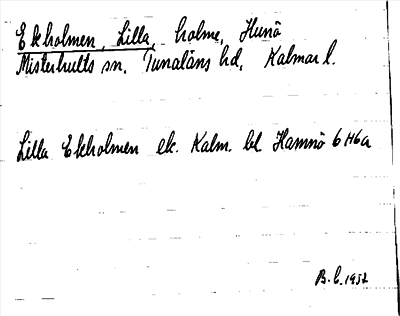 Ekholmen, Lilla, holme, Hunö
Misterhults sn. Tunaläns hd, Kalmar l.
Lilla Ekholmen ek. Kalm. bl. Hamnö 6 H6a
B.C. 1952